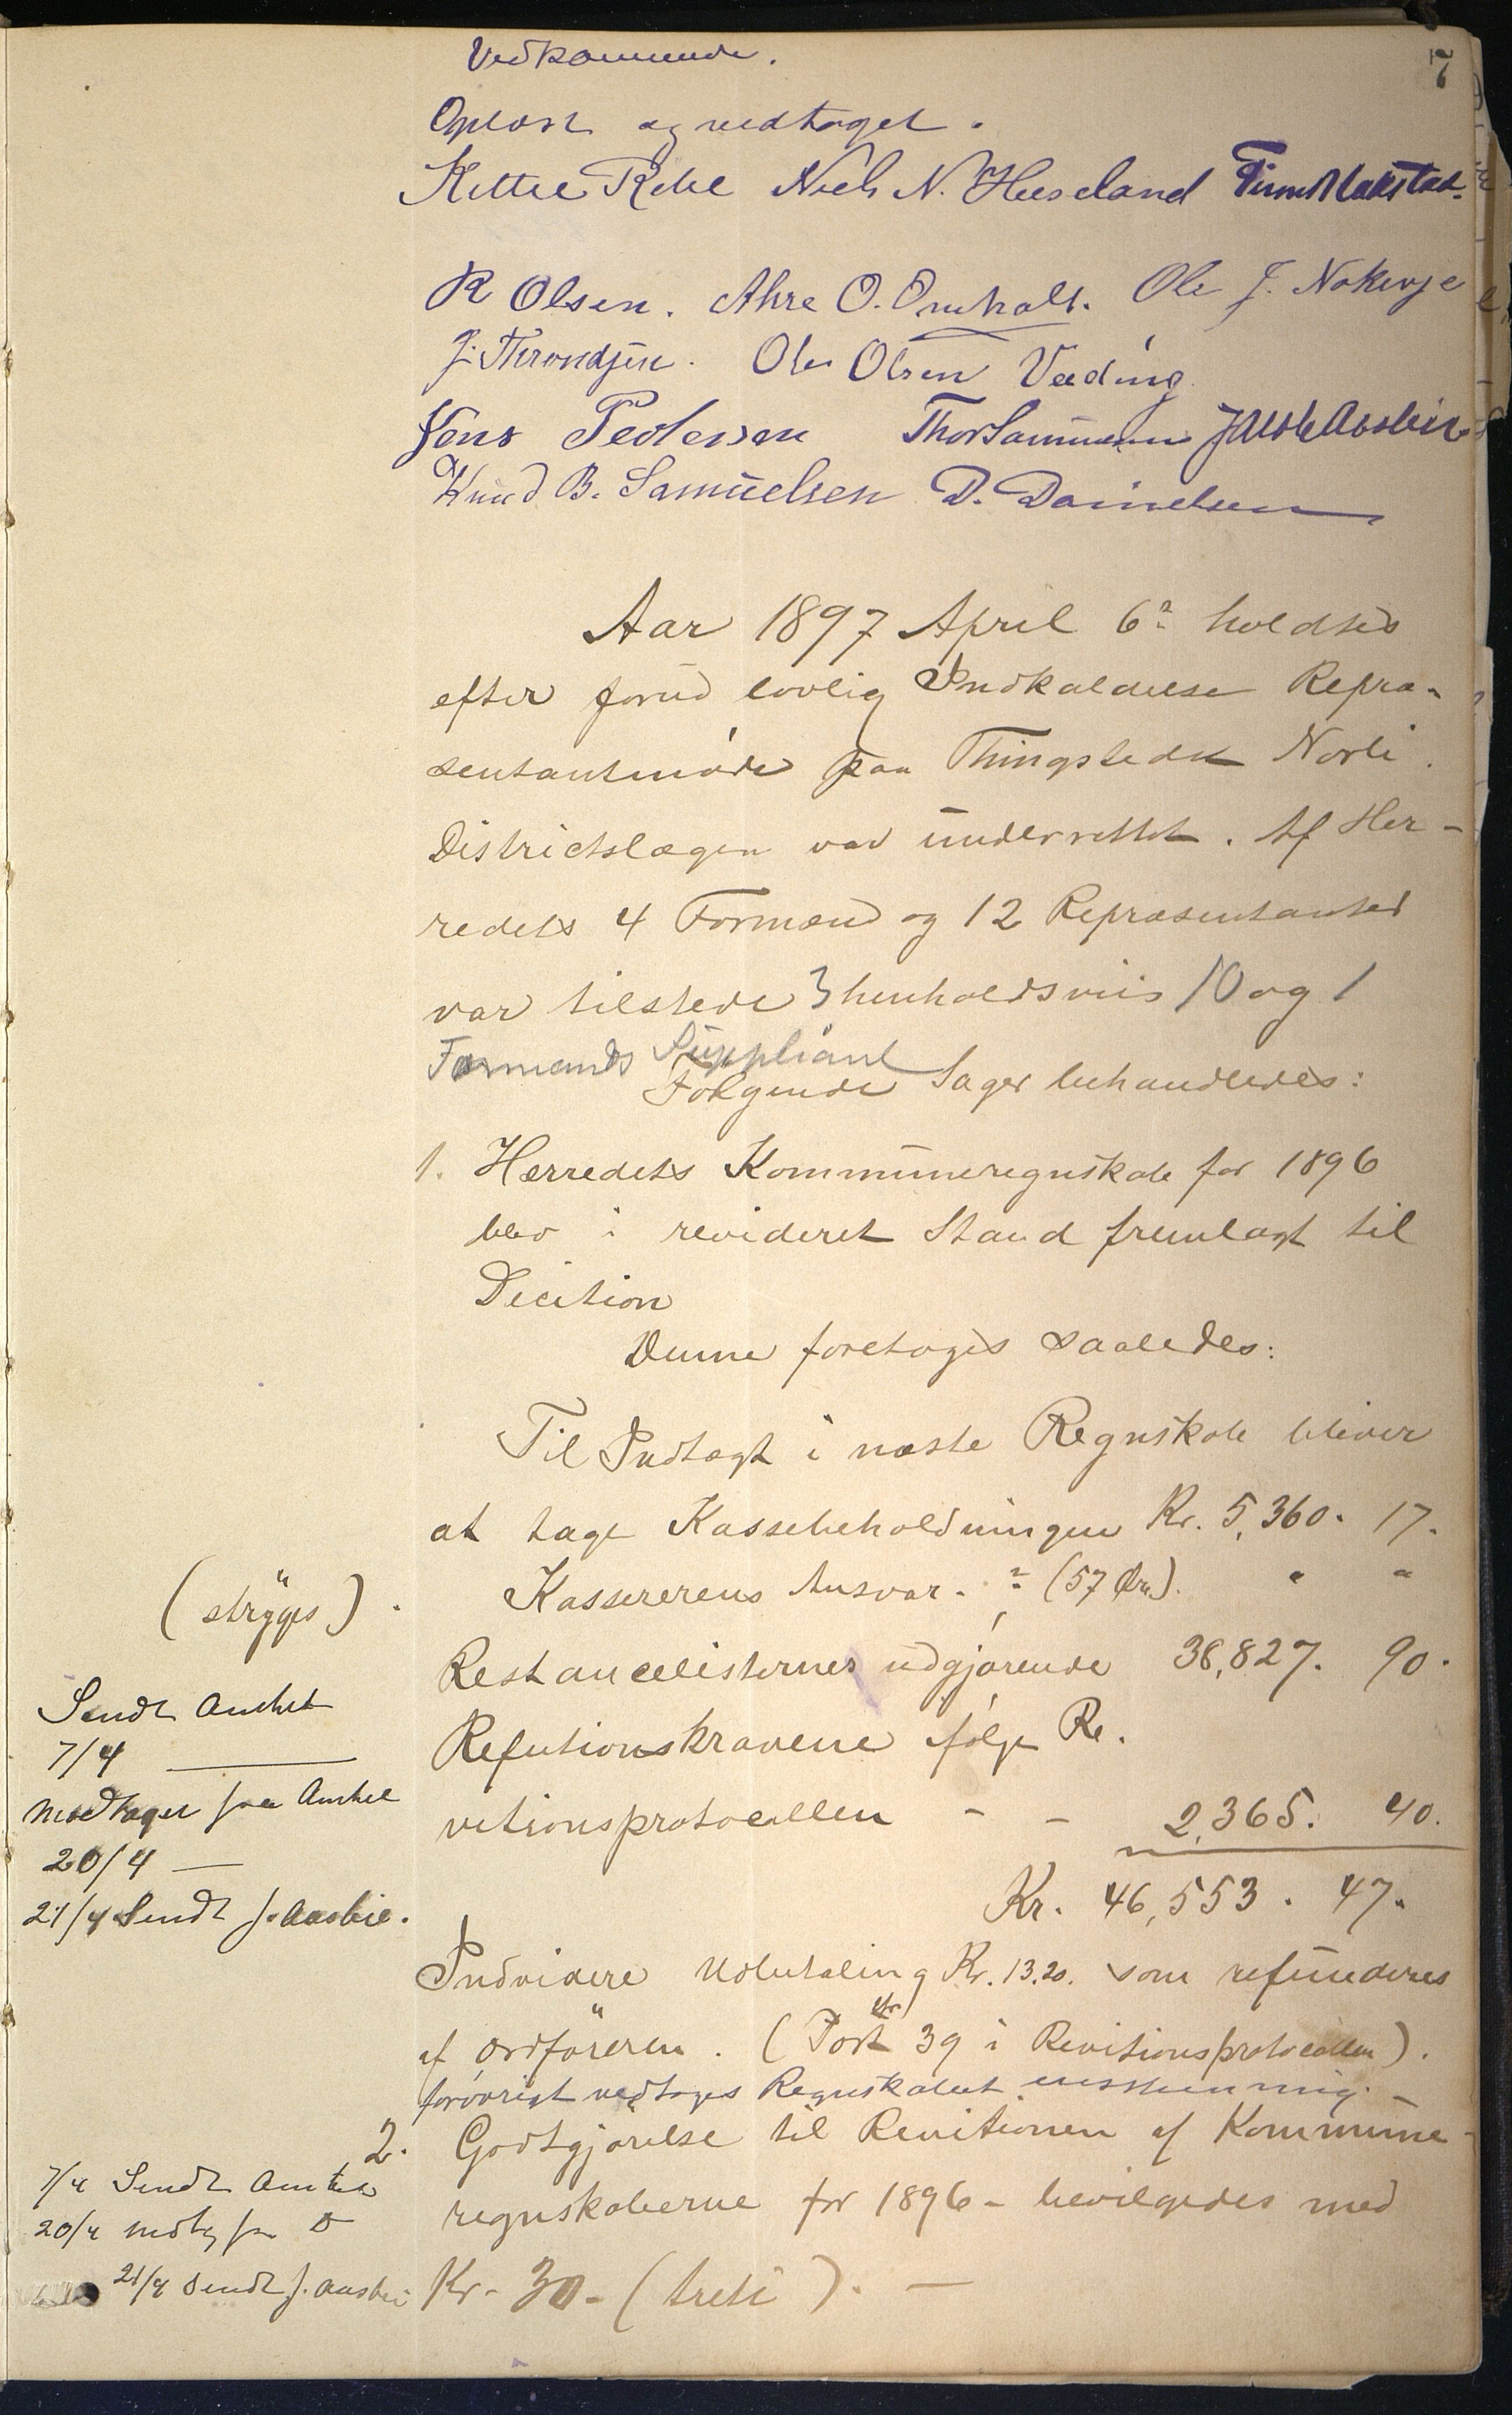 7
Vedkommende.
Oplæst og vedtaget.
Kittel Rebe Niels N. Heseland Finn Blakstad.
R Olsen. Ahre O. Omholt. Ole J. Nakenje
J. Throndsen. Ole Olsen Væding
Jens Pedersen Thor Samuelsen J Aasbie
Knud B. Samuelsen D. Danielsen
Aar 1897 April 6te holdtes
efter forud lovlig Indkaldelse Repræ-
sentantmøde paa Thingstedet Norli.
Districtslægen var underrettet. Af Her-
redets 4 Formænd og 12 Repræsentanter
var tilstede 3 henholdsviis 10 og 1
Formands Suppliant
Følgende Sager behandledes:
1. Herredets Kommuneregnskab for 1896
blev i revideret Stand fremlagt til
Decition
Denne foretoges saaledes:
Til Indtægt i næste Regnskab bliver
at tage Kassebeholdningen Kr. 5,360. 17.
Kassererens Ansvar. - (57 Øre). " "
(strÿges).
Restancelisternes udgjørende 38,827. 90.
Refutionskravene ifølge Re.
vitionsprotocollen - - 2,365. 40.
Kr. 46,553. 47.
Sendt Amtet
7/4
Modtaget fra Amtet
20/4 —
21/4 Sendt J. Aasbie.
Indvidere Udbetaling Kr. 13,20. som refunderes
af Ordføreren. (Post 39 i Revitionsprotocollen).
forøvrigt vedtoges Regnskabet eensstemmig. -
2. Godtgjørelse til Revitionen af Kommune-
regnskaberne for 1896 - bevilgedes med
Kr. 30 - (treti). —
7/4 Sendt Amtet
20/4 modtg fra D
21/4 Sendt J. Aasbie